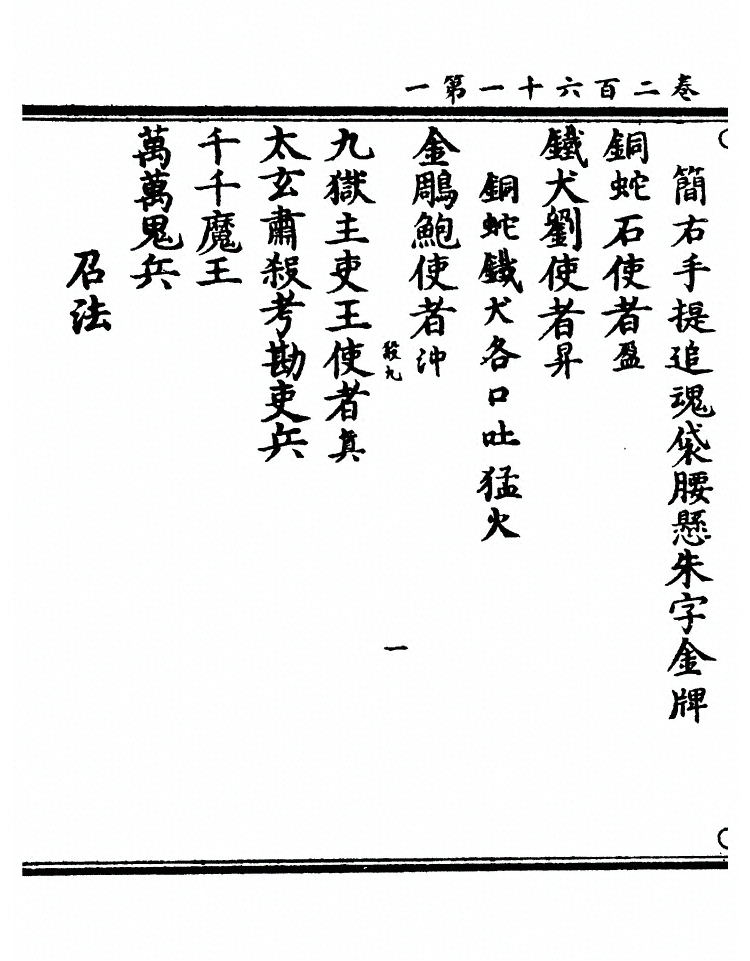 卷二百六十一第一
簡右手提追魂袋腰懸朱字金牌
銅蛇石使者盈
鐵犬劉使者昇
銅蛇鐵犬各口吐猛火
金鵰鮑使者沖
殺九
一
九獄主吏王使者真
太玄肅殺考勘吏兵
千千魔王
萬萬鬼兵
召法